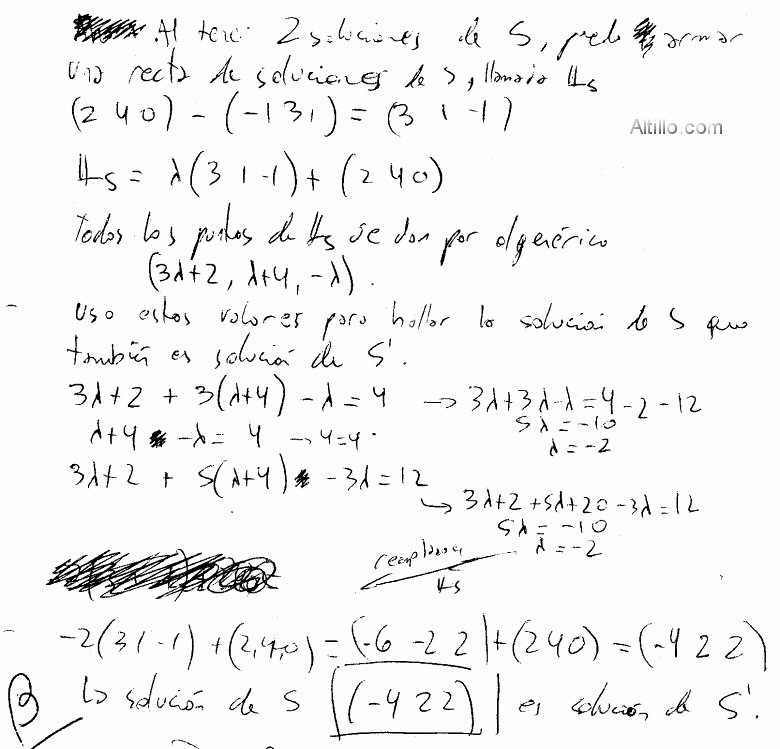 Al tener 2 soluciones de S, puedo armar
una recta de soluciones de S, llamada Hs
(2 4 0) - (-1 3 1) = (3 1 -1)
Altillo.com
Hs = λ(3 1 -1) + (2 4 0)
todos los puntos de Hs se dan por el genérico
(3λ+2, λ+4, -λ).
Uso estos valores para hallar la solución de S que
también es solución de S'.
3λ+2 + 3(λ+4) - λ = 4 → 3λ+3λ-λ = 4-2-12
5λ = -10
λ+4 -λ = 4 → 4=4
λ = -2
3λ+2 + 5(λ+4) - 3λ = 12
↳ 3λ+2+5λ+20-3λ = 12
5λ = -10
λ = -2
reemplazo
Hs
-2(3 1 -1) + (2,4,0) = (-6 -2 2) + (2 4 0) = (-4 2 2)
La solución de S (-4 2 2) es solución de S'.